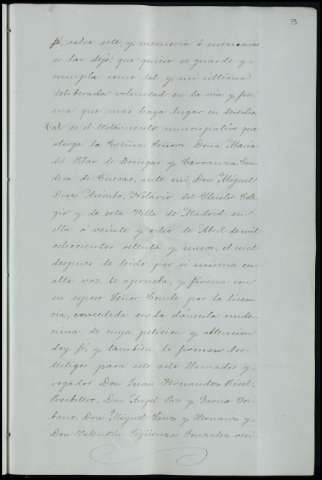 3
valer este y memoria ó memorias
se las dejo que quiero se guarde y
cumpla como tal y mi última
deliberada voluntad en la via y for
ma que mas haya lugar en derecho
Tal es el testamento nuncupativo que
otorga la Excelma Señora Doña Maria
del Pilar de Arriegas y Carranza Con
desa de Cuevas, ante mi, Don Miguel
Diaz Arévalo, Notario del Ilustre Cole
gio y de esta Villa de Madrid, en
ella á veinte y ocho de Abril de mil
ochocientos setenta y nueve, el cual
despues de leido por si misma en
alta voz, lo aprueba, y firma con
su esposo Señor Conde por la licen
cia, concedida en la cláusula unde
cima de cuya peticion y obtencion
doy fé, y tambien lo firman los
testigos para este acto llamados y
rogados Don Juan Hernandez
Don Angel y Garcia
Don Miguel Saez y
Don Valentin Sigüenza Gonzalez veci